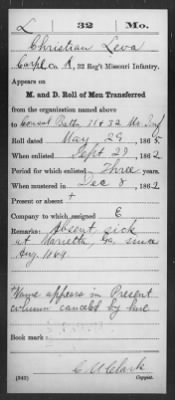 L 32 Mo.
Christian Leva
Corpl, Co. K, 32 Reg't Missouri Infantry.
Appears on
M. and D. Roll of Men Transferred
from the organization named above
to Consol Battn 31 & 32 Mo Inf
Roll dated May 29, 1865.
When enlisted Sept 29, 1862
Period for which enlisted Three years.
When mustered in Dec 8, 1862
Present or absent +
Company to which assigned E
Remarks: Absent sick
at Marietta, Ga. since
Aug. 1864
Name appears in Present
column canceled by line
Book mark:
C A Clark
(343) Copyist.